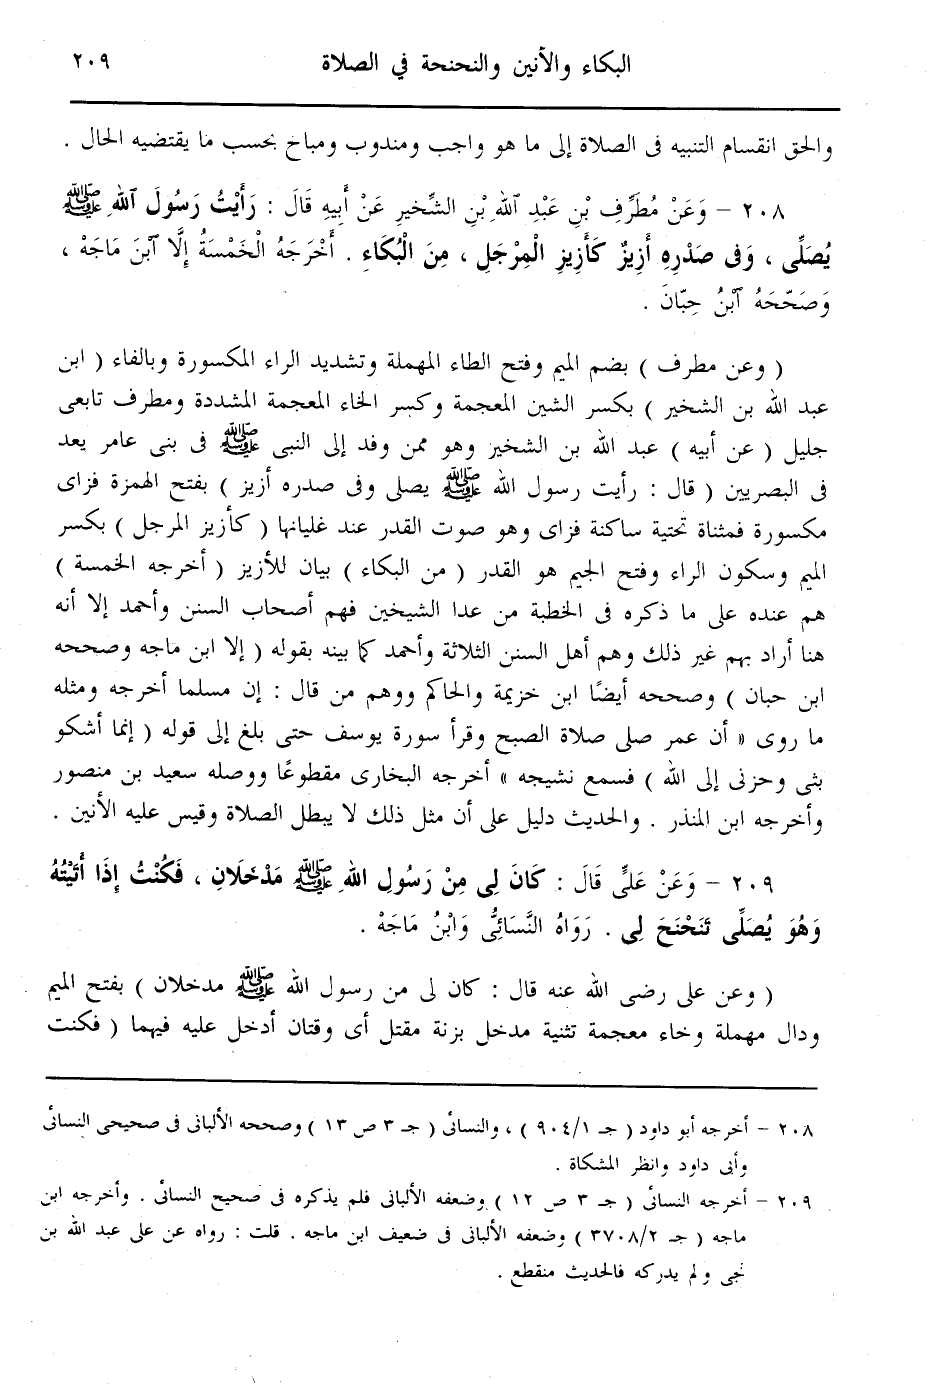 البكاء والأنين والنحنحة في الصلاة ٢٠٩
والحق انقسام التنبيه فى الصلاة إلى ما هو واجب ومندوب ومباح بحسب ما يقتضيه الحال .
٢٠٨ – وَعَنْ مُطَرِّفِ بْنِ عَبْدِ ٱللهِ بْنِ الشِّخِّيرِ عَنْ أَبِيهِ قَالَ : رَأَيْتُ رَسُولَ ٱللهِ ﷺ
يُصَلِّى ، وَفى صَدْرِهِ أَزِيزٌ كَأَزِيزِ الْمِرْجَلِ ، مِنَ الْبُكَاءِ . أَخْرَجَهُ الْخَمْسَةُ إِلَّا ٱبْنَ مَاجَهْ ،
وَصَحَّحَهُ ٱبْنُ حِبَّانَ .
( وعن مطرف ) بضم الميم وفتح الطاء المهملة وتشديد الراء المكسورة وبالفاء ( ابن
عبد الله بن الشخير ) بكسر الشين المعجمة وكسر الخاء المعجمة المشددة ومطرف تابعى
جليل ( عن أبيه ) عبد الله بن الشخير وهو ممن وفد إلى النبى ﷺ فى بنى عامر يعد
فى البصريين ( قال : رأيت رسول الله ﷺ يصلى وفى صدره أزيز ) بفتح الهمزة فزاى
مكسورة فمثناة تحتية ساكنة فزاى وهو صوت القدر عند غليانها ( كأزيز المرجل ) بكسر
الميم وسكون الراء وفتح الجيم هو القدر ( من البكاء ) بيان للأزيز ( أخرجه الخمسة )
هم عنده على ما ذكره فى الخطبة من عدا الشيخين فهم أصحاب السنن وأحمد إلا أنه
هنا أراد بهم غير ذلك وهم أهل السنن الثلاثة وأحمد كما بينه بقوله ( إلا ابن ماجه وصححه
ابن حبان ) وصححه أيضًا ابن خزيمة والحاكم ووهم من قال : إن مسلما أخرجه ومثله
ما روى « أن عمر صلى صلاة الصبح وقرأ سورة يوسف حتى بلغ إلى قوله ( إنما أشكو
بثى وحزنى إلى الله ) فسمع نشيجه » أخرجه البخارى مقطوعًا ووصله سعيد بن منصور
وأخرجه ابن المنذر . والحديث دليل على أن مثل ذلك لا يبطل الصلاة وقيس عليه الأنين .
٢٠٩ – وَعَنْ عَلىٍّ قَالَ : كَانَ لِى مِنْ رَسُولِ اللهِ ﷺ مَدْخَلَانِ ، فَكُنْتُ إِذَا أَتَيْتُهُ
وَهُوَ يُصَلِّى تَنَحْنَحَ لِى . رَوَاهُ النَّسَائِىُّ وَابْنُ مَاجَهْ .
( وعن على رضى الله عنه قال : كان لى من رسول الله ﷺ مدخلان ) بفتح الميم
ودال مهملة وخاء معجمة تثنية مدخل بزنة مقتل أى وقتان أدخل عليه فيهما ( فكنت
٢٠٨ – أخرجه أبو داود ( جـ ٩٠٤/١ ) ، والنسائى ( جـ ٣ ص ١٣ ) وصححه الألبانى فى صحيحى النسائى
وأبى داود وانظر المشكاة .
٢٠٩ – أخرجه النسائى ( جـ ٣ ص ١٢ ) وضعفه الألبانى فلم يذكره فى صحيح النسائى . وأخرجه ابن
ماجه ( جـ ٣٧٠٨/٢ ) وضعفه الألبانى فى ضعيف ابن ماجه . قلت : رواه عن على عبد الله بن
نجى ولم يدركه فالحديث منقطع .